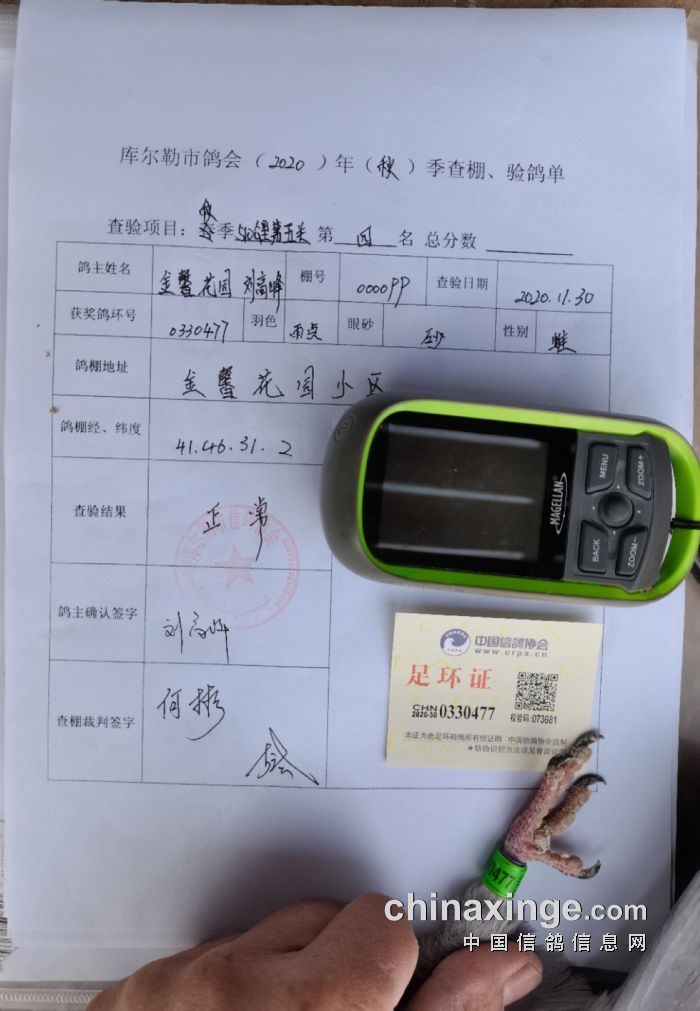 库尔勒市鸽会（2020）年（秋）季查棚、验鸽单
秋
查验项目：春季510公里第五关 第 四 名 总分数
鸽主姓名 金馨花园 刘高峰 棚号 0000PP 查验日期 2020.11.30
获奖鸽环号 0330477 羽色 雨点 眼砂 砂 性别 雌
鸽棚地址 金馨花园小区
鸽棚经、纬度 41.46.31.2
查验结果 正常
鸽主确认签字 刘高峰
查棚裁判签字 何彬
MAGELLAN
MENU
ZOOM+
BACK
ZOOM-
中国信鸽协会
www.crpa.cn
足环证
CHN
2020-30 0330477
校验码:073681
本证为此足环码鸽所有权证明 中国信鸽协会监制
★防伪识别方法请见背面说明
0477
chinaxinge.com
中国信鸽信息网